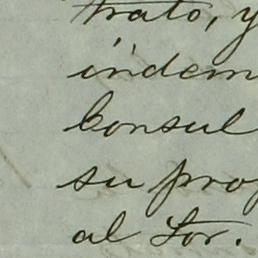 trato, y
indem
Consul
su prop
al Sor.